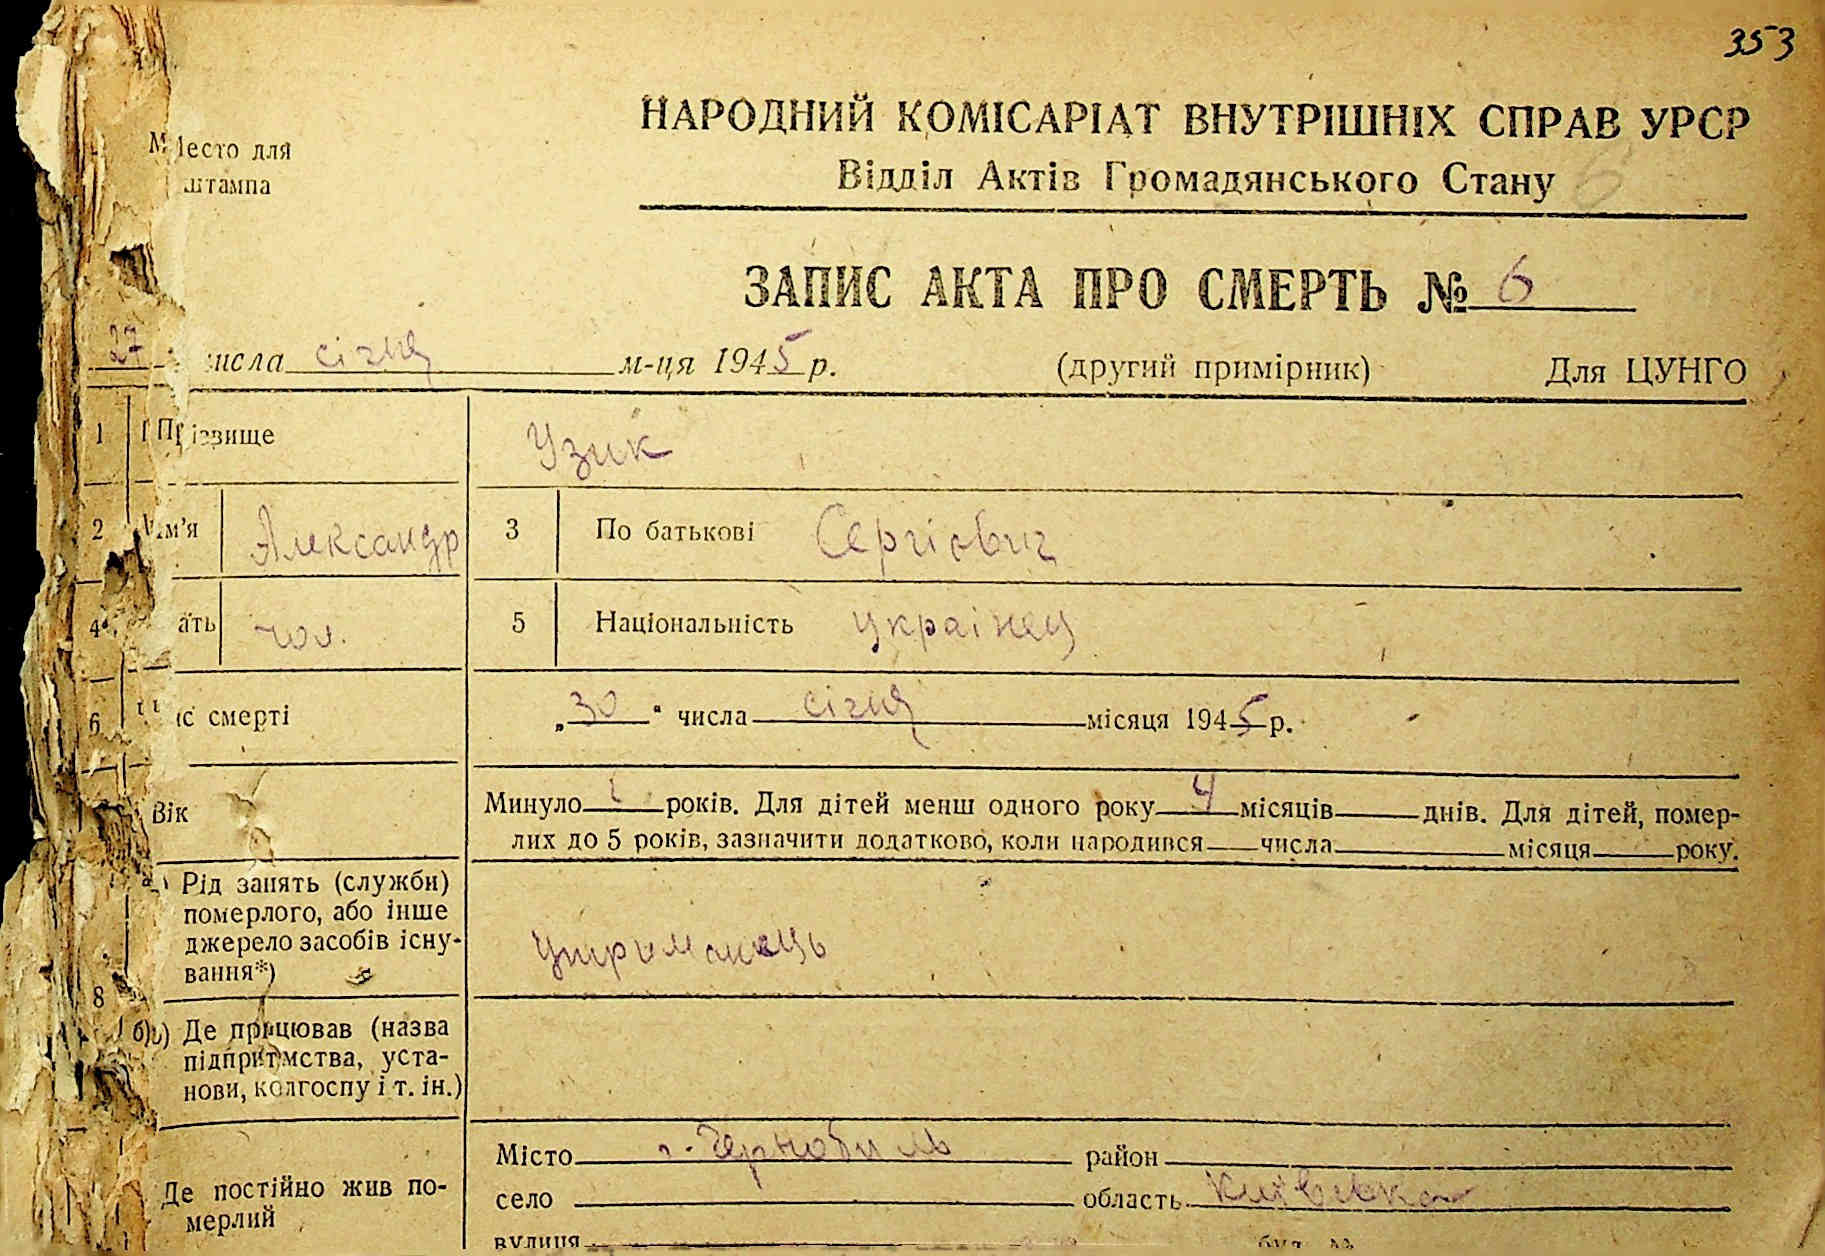 353
Место для
штампа
НАРОДНИЙ КОМІСАРІАТ ВНУТРІШНІХ СПРАВ УРСР
Відділ Актів Громадянського Стану
6
ЗАПИС АКТА ПРО СМЕРТЬ № 6
27 числа січня м-ця 1945 р. (другий примірник) Для ЦУНГО
1 Прізвище Узик
2 Ім'я Александр 3 По батькові Сергієвич
4 ать чол. 5 Національність українец
6 ас смерті „30" числа січня місяця 1945 р.
Вік Минуло років. Для дітей менш одного року 4 місяців днів. Для дітей, помер-
лих до 5 років, зазначити додатково, коли народився числа місяця року.
8 а) Рід занять (служби)
померлого, або інше
джерело засобів існу-
вання*)
Утриманець
б) Де працював (назва
підприємства, уста-
нови, колгоспу і т. ін.)
Де постійно жив по-
мерлий
Місто г. Чернобиль район
село область Київська
вулиця буд. №